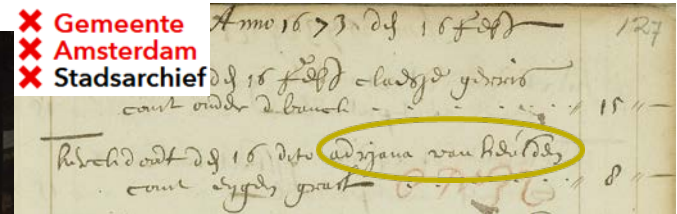 Gemeente
Amsterdam
Stadsarchief
Anno 1673 dḣ 16 Febr 127
dḣ 16 Febr claesje gerris
comt onder d banck 15 "—
dḣ 16 dito adrjana van heúlden
comt eygen graft 8 "—